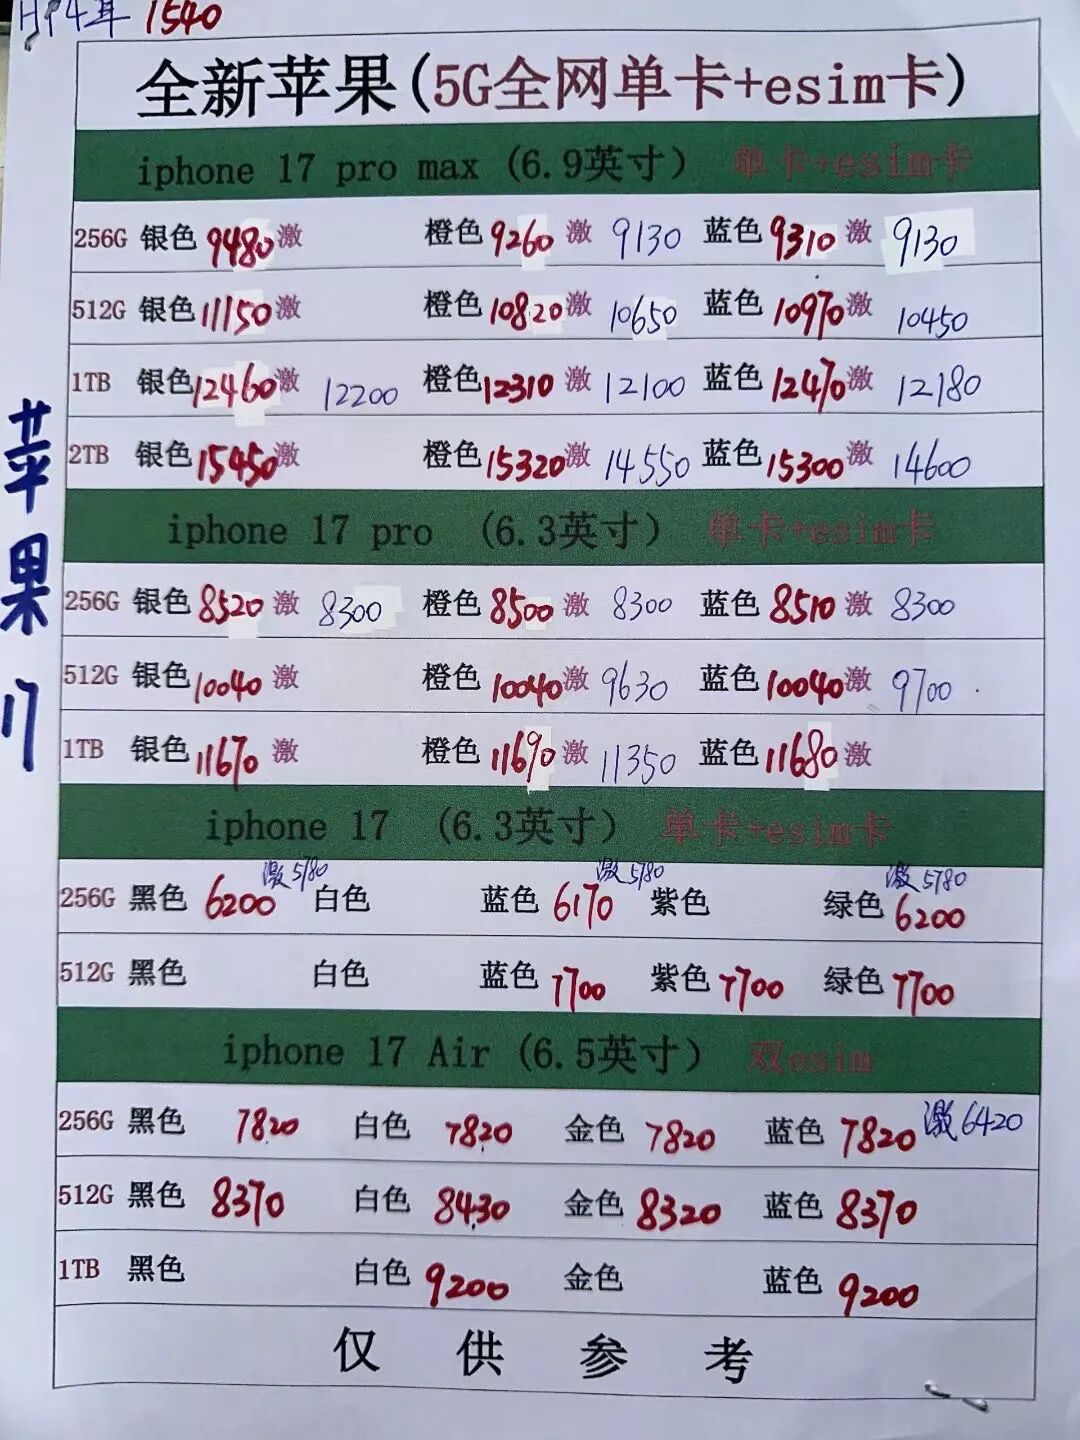 1540
全新苹果(5G全网单卡+esim卡)
iphone 17 pro max (6.9英寸) 单卡+esim卡
256G 银色 9480 激 橙色 9260 激 9130 蓝色 9310 激 9130
512G 银色 11150 激 橙色 10820 激 10650 蓝色 10970 激 10450
1TB 银色 12460 激 12200 橙色 12310 激 12100 蓝色 12470 激 12180
2TB 银色 15450 激 橙色 15320 激 14550 蓝色 15300 激 14600
iphone 17 pro (6.3英寸) 单卡+esim卡
256G 银色 8520 激 8300 橙色 8500 激 8300 蓝色 8510 激 8300
512G 银色 10040 激 橙色 10040 激 9630 蓝色 10040 激 9700
1TB 银色 11670 激 橙色 11690 激 11350 蓝色 11680 激
iphone 17 (6.3英寸) 单卡+esim卡
256G 黑色 6200 激5780 白色 蓝色 6170 激5780 紫色 绿色 6200 激5780
512G 黑色 白色 蓝色 7700 紫色 7700 绿色 7700
iphone 17 Air (6.5英寸) 双esim
256G 黑色 7820 白色 7820 金色 7820 蓝色 7820 激6420
512G 黑色 8370 白色 8430 金色 8320 蓝色 8370
1TB 黑色 白色 9200 金色 蓝色 9200
仅供参考
苹果17